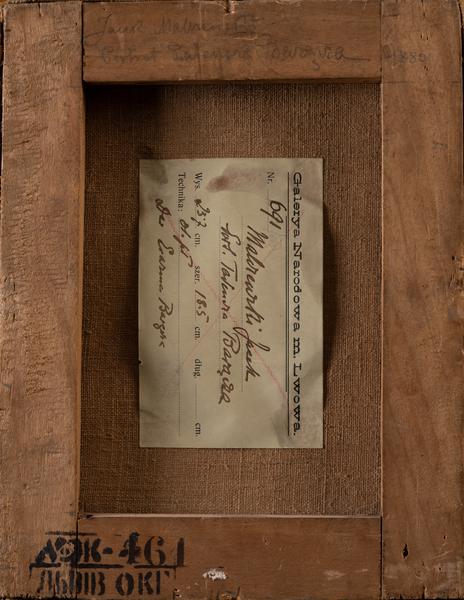 Jacek Malczewski
Portret Tadeusza Barącza 1880
Galerya Narodowa m. Lwowa.
Nr. 691
Malczewski Jacek
Tadeusza Barącza
Wys. 23·7 cm. szer. 18·5 cm. dług. cm.
Technika: ol. pł
Erazma Barącza
Ж-461
ЛЬВІВ ОКГ